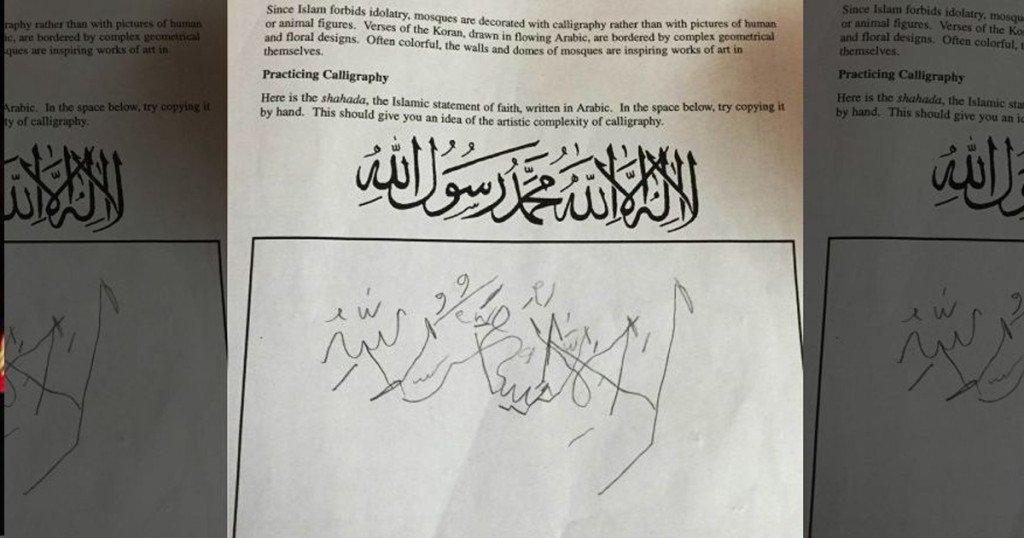 Since Islam forbids idolatry, mosques are decorated with calligraphy rather than with pictures of human
or animal figures. Verses of the Koran, drawn in flowing Arabic, are bordered by complex geometrical
and floral designs. Often colorful, the walls and domes of mosques are inspiring works of art in
themselves.
Practicing Calligraphy
Here is the shahada, the Islamic statement of faith, written in Arabic. In the space below, try copying it
by hand. This should give you an idea of the artistic complexity of calligraphy.
لا إله إلا الله محمد رسول الله